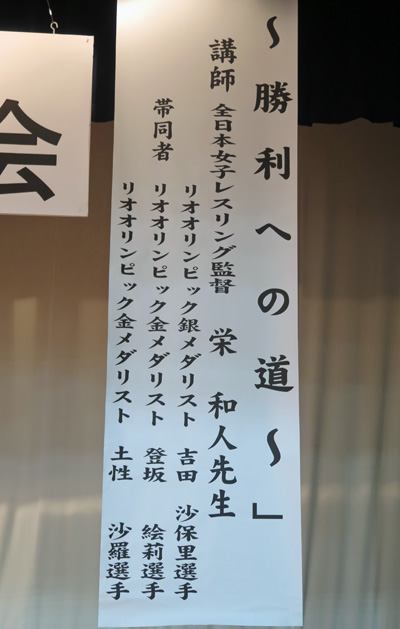 ～勝利への道～」
講師 全日本女子レスリング監督 栄 和人先生
帯同者 リオオリンピック銀メダリスト 吉田 沙保里選手
リオオリンピック金メダリスト 登坂 絵莉選手
リオオリンピック金メダリスト 土性 沙羅選手
会